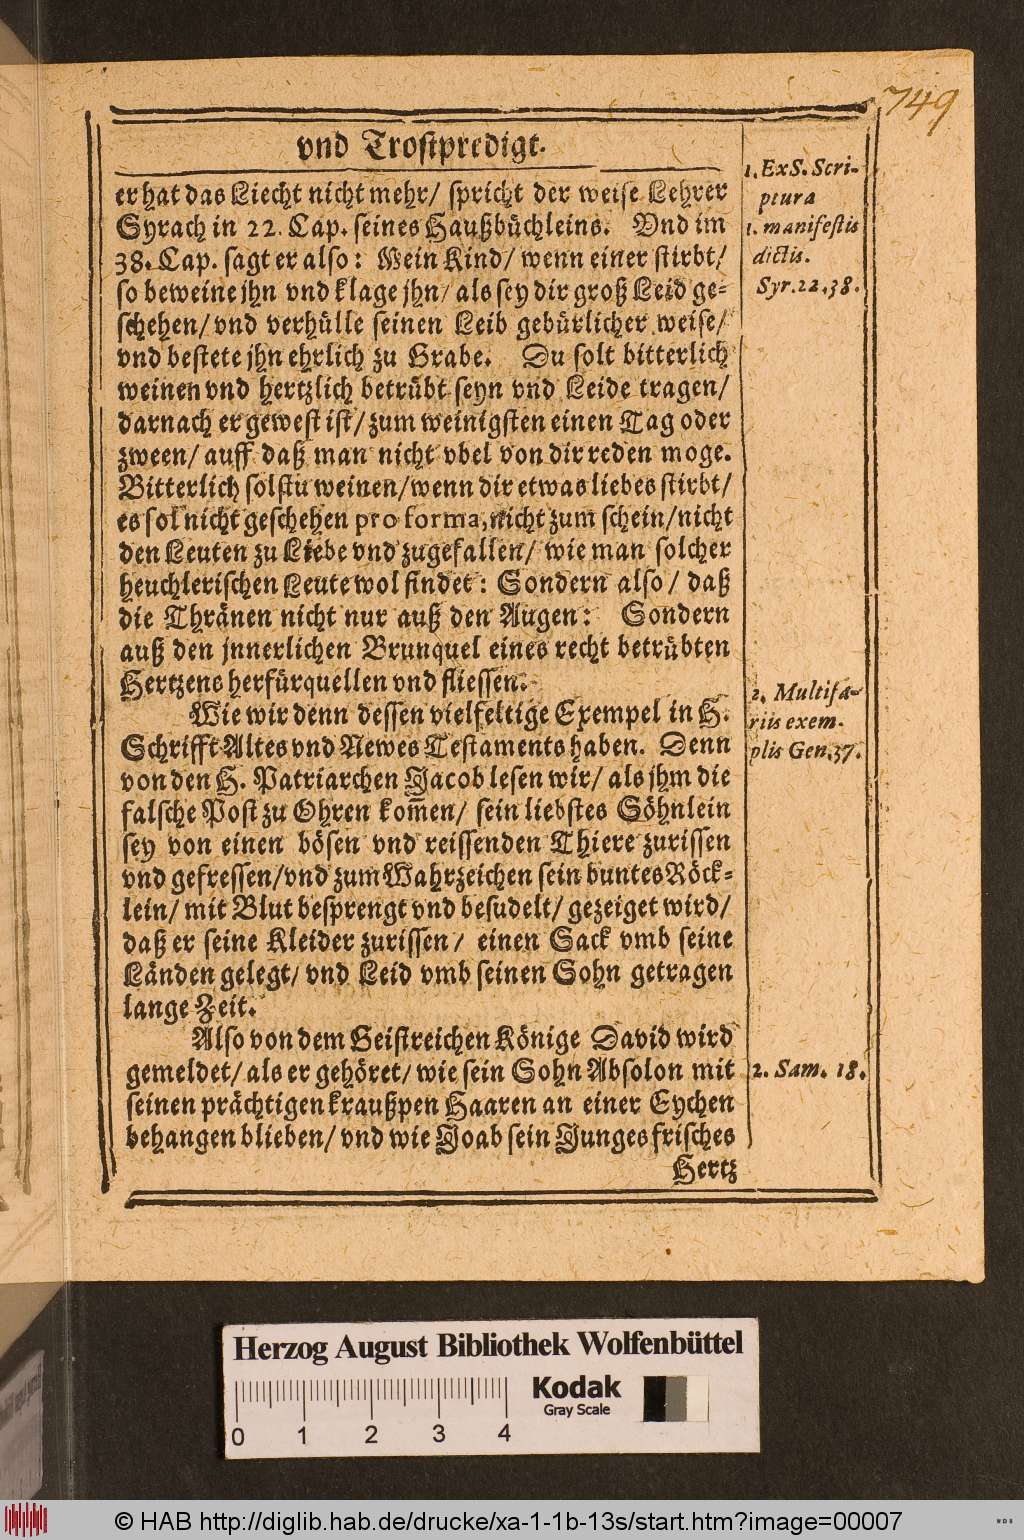 749
vnd Trostpredigt.
er hat das Liecht nicht mehr/ spricht der weise Lehrer
Syrach in 22. Cap. seines Haußbüchleins. Vnd im
38. Cap. sagt er also: Mein Kind/ wenn einer stirbt/
so beweine jhn vnd klage jhn/ als sey dir groß Leid ge-
schehen/ vnd verhülle seinen Leib gebürlicher weise/
vnd bestete jhn ehrlich zu Grabe. Du solt bitterlich
weinen vnd hertzlich betrübt seyn vnd Leide tragen/
darnach er gewest ist/ zum weinigsten einen Tag oder
zween/ auff daß man nicht vbel von dir reden moge.
Bitterlich solstu weinen/ wenn dir etwas liebes stirbt/
es sol nicht geschehen pro forma, nicht zum schein/ nicht
den Leuten zu Liebe vnd zugefallen/ wie man solcher
heuchlerischen Leute wol findet: Sondern also/ daß
die Thränen nicht nur auß den Augen: Sondern
auß den jnnerlichen Brunquel eines recht betrübten
Hertzens herfürquellen vnd fliessen.
Wie wir denn dessen vielfeltige Exempel in H.
Schrifft Altes vnd Newes Testaments haben. Denn
von den H. Patriarchen Jacob lesen wir/ als jhm die
falsche Post zu Ohren kom̅en/ sein liebstes Söhnlein
sey von einen bösen vnd reissenden Thiere zurissen
vnd gefressen/ vnd zum Wahrzeichen sein buntes Röck-
lein/ mit Blut besprengt vnd besudelt/ gezeiget wird/
daß er seine Kleider zurissen/ einen Sack vmb seine
Länden gelegt/ vnd Leid vmb seinen Sohn getragen
lange Zeit.
Also von dem Geistreichen Könige David wird
gemeldet/ als er gehöret/ wie sein Sohn Absolon mit
seinen prächtigen kraußpen Haaren an einer Eychen
behangen blieben/ vnd wie Joab sein Junges frisches
Hertz
1. Ex S. Scri-
ptura
1. manifestis
dictis.
Syr. 22. 38.
2. Multifa-
riis exem-
plis Gen. 37.
2. Sam. 18.
Herzog August Bibliothek Wolfenbüttel
Kodak
Gray Scale
0 1 2 3 4
© HAB http://diglib.hab.de/drucke/xa-1-1b-13s/start.htm?image=00007